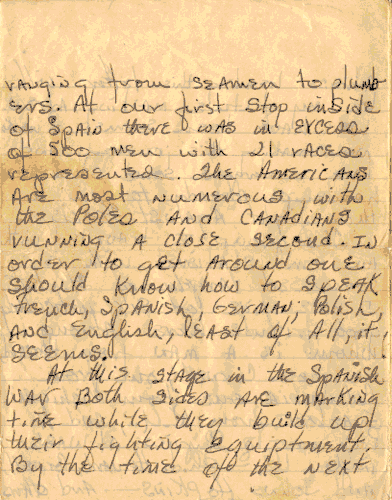 ranging from seamen to plumb
ers. At our first stop inside
of Spain there was in excess
of 500 men with 21 races
represented. The Americans
are most numerous, with
the Poles and Canadians
running a close second. In
order to get around one
should know how to speak
French, Spanish, German, Polish,
and English, least of all, it
seems.
At this stage in the Spanish
War both sides are marking
time while they build up
their fighting equiptment.
By the time of the next